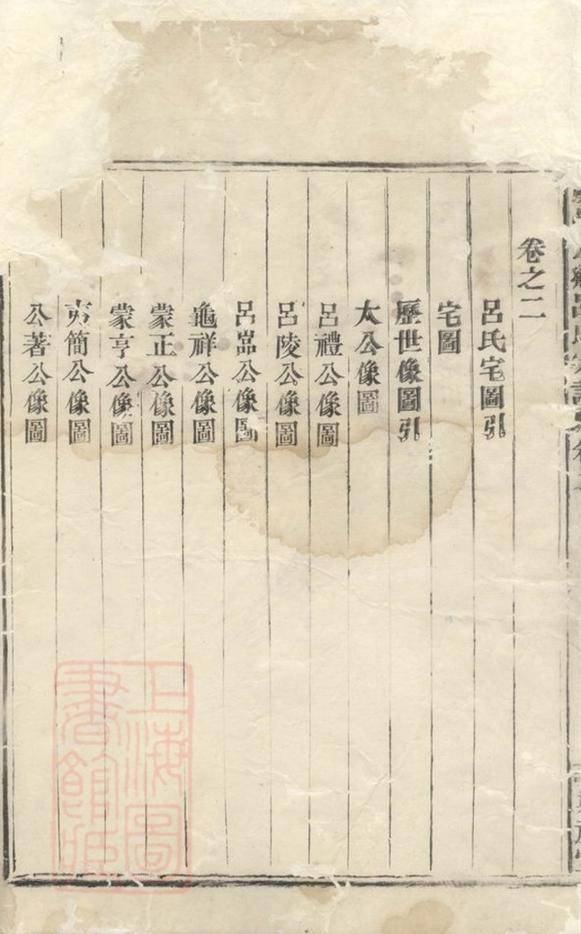 卷之二
呂氏宅圖引
宅圖
歷世像圖引
太公像圖
呂禮公像圖
呂陵公像圖
呂嵓公像圖
龜祥公像圖
蒙正公像圖
蒙亨公像圖
夷簡公像圖
公著公像圖
上海圖書館藏